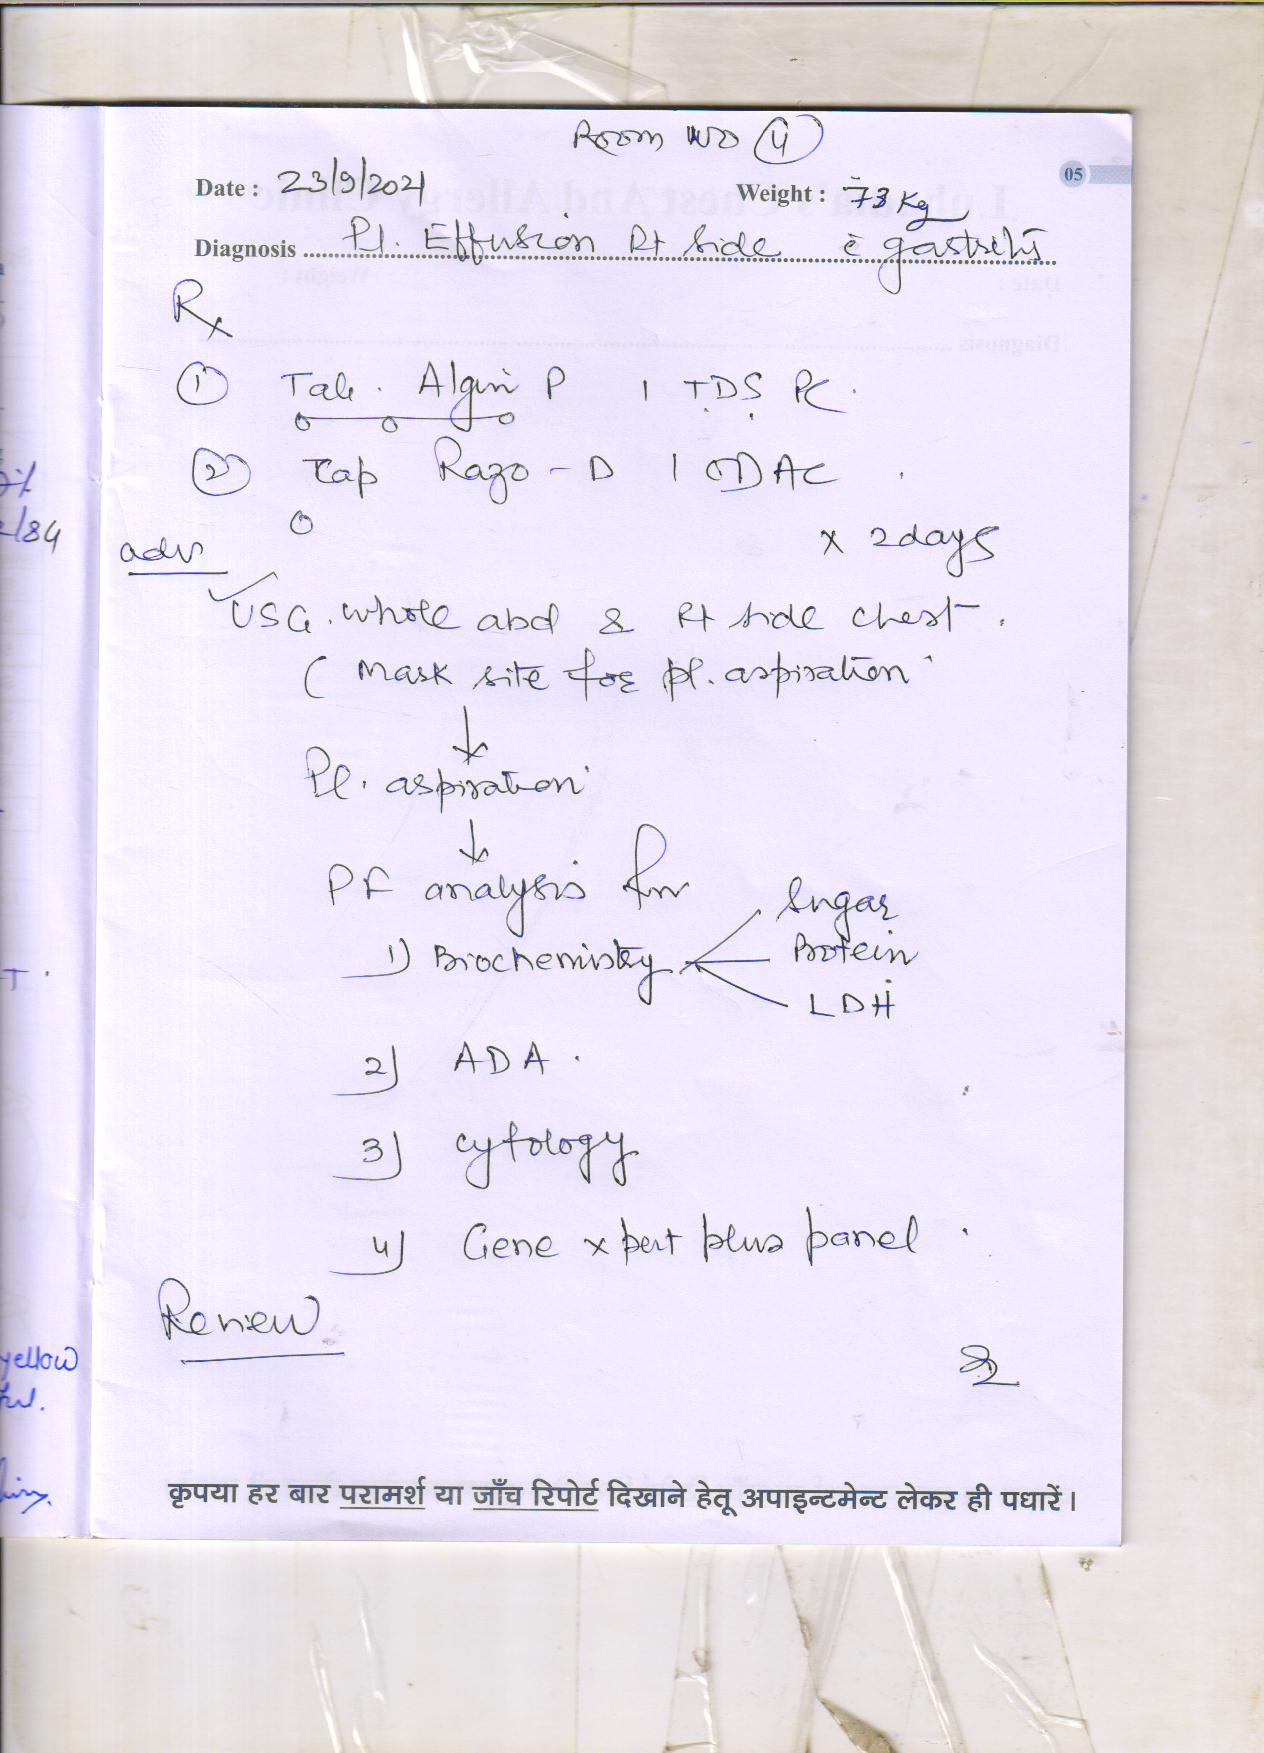 Room No 4
05
Date : 23/9/2021 Weight : 73 Kg
Diagnosis Pl. Effusion Rt side c̄ gastritis
Rx
1 Tab. Algin P 1 TDS PC.
2 Cap Razo-D 1 OD AC.
x 2 days
adv
USG. whole abd & Rt side chest.
( Mark site for pl. aspiration
↓
Pl. aspiration
↓
PF analysis for
Sugar
1) Biochemistry Protein
LDH
2) ADA.
3) cytology
4) Gene xpert plus panel.
Review
कृपया हर बार परामर्श या जाँच रिपोर्ट दिखाने हेतू अपाइन्टमेन्ट लेकर ही पधारें।
/84
T.
yellow